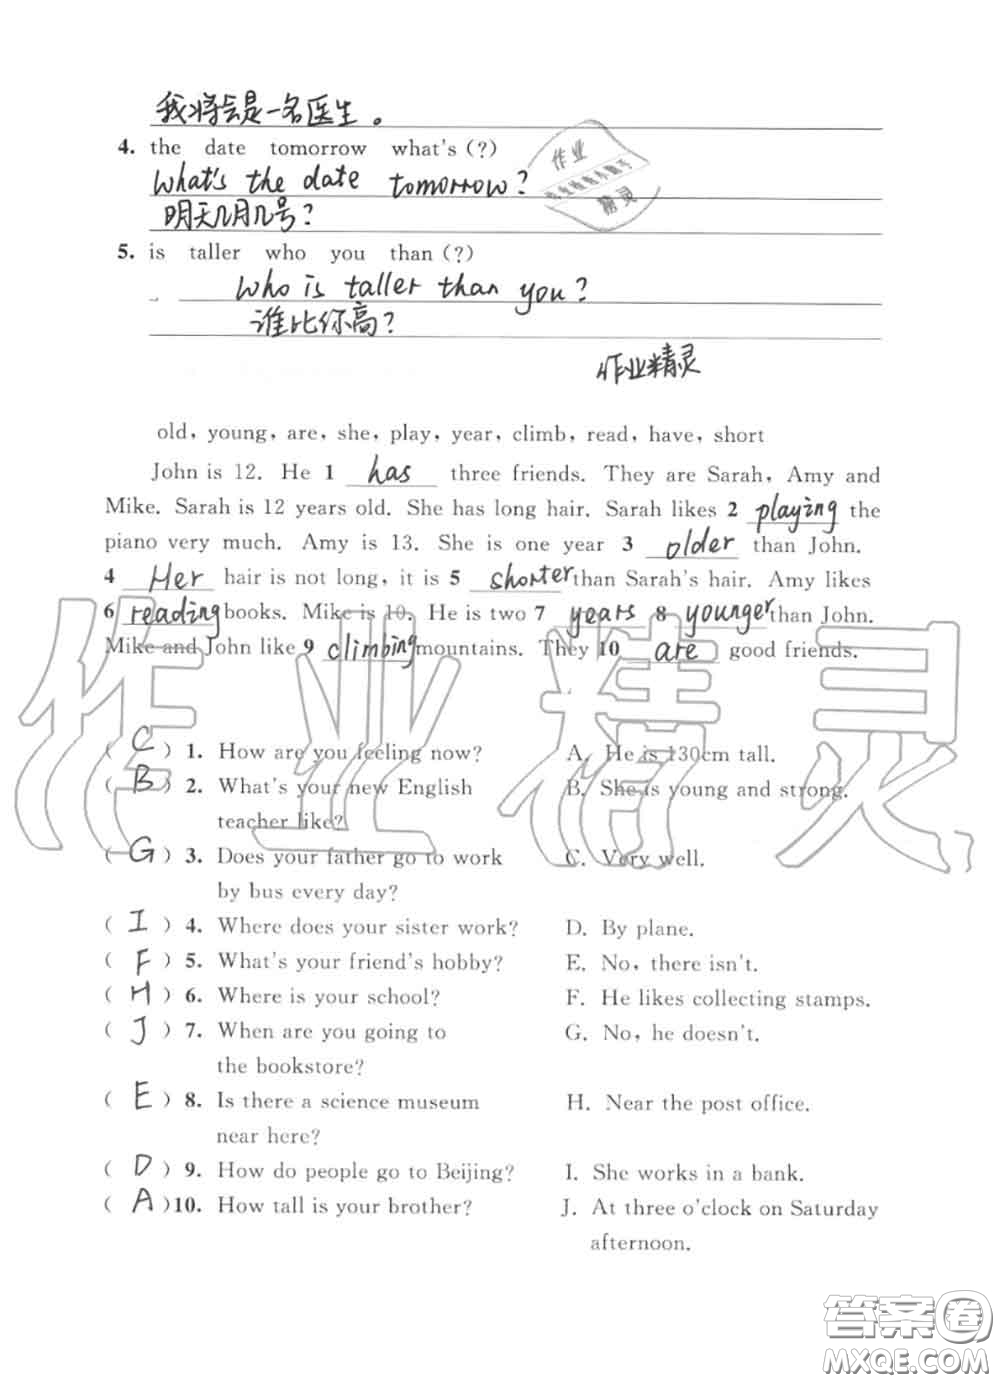 我将会是一名医生。
4. the date tomorrow what's (?)
What's the date tomorrow?
明天几月几号?
5. is taller who you than (?)
Who is taller than you?
谁比你高?
作业精灵
作业
精灵
old, young, are, she, play, year, climb, read, have, short
John is 12. He 1 has three friends. They are Sarah, Amy and
Mike. Sarah is 12 years old. She has long hair. Sarah likes 2 playing the
piano very much. Amy is 13. She is one year 3 older than John.
4 Her hair is not long, it is 5 shorter than Sarah's hair. Amy likes
6 reading books. Mike is 10. He is two 7 years 8 younger than John.
Mike and John like 9 climbing mountains. They 10 are good friends.
作业精灵
( C ) 1. How are you feeling now? A. He is 130cm tall.
( B ) 2. What's your new English B. She is young and strong.
teacher like?
( G ) 3. Does your father go to work C. Very well.
by bus every day?
( I ) 4. Where does your sister work? D. By plane.
( F ) 5. What's your friend's hobby? E. No, there isn't.
( H ) 6. Where is your school? F. He likes collecting stamps.
( J ) 7. When are you going to G. No, he doesn't.
the bookstore?
( E ) 8. Is there a science museum H. Near the post office.
near here?
( D ) 9. How do people go to Beijing? I. She works in a bank.
( A )10. How tall is your brother? J. At three o'clock on Saturday
afternoon.
答案卷
MXQE.COM